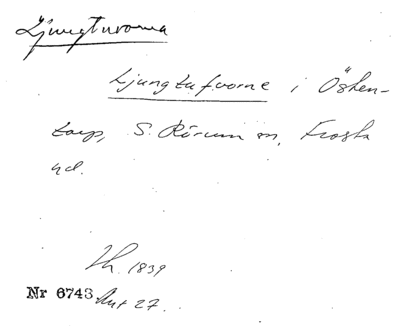 Ljungtuvorna
Ljungtufvorne i Östen-
torp, S. Rörum sn, Frosta
hd.
Th. 1839
Nr 6743 Akt 27.